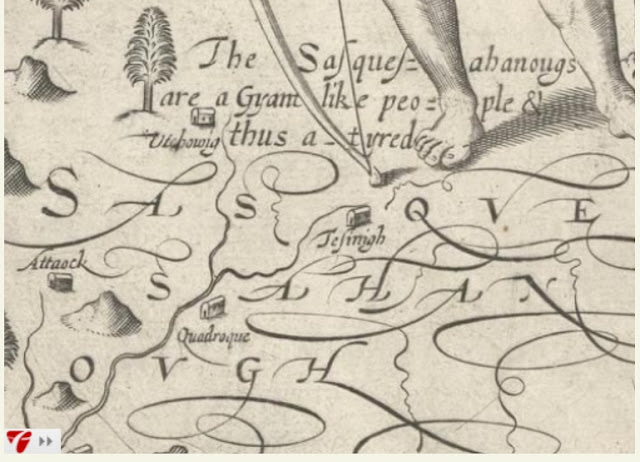 The Saſqueſ= ahanougs
are a Gyant like peo= ple &
thus a-tyred
Utchowig
S A S Q V E
Teſinigh
Attaock
S A H A N
Quadroque
O V G H